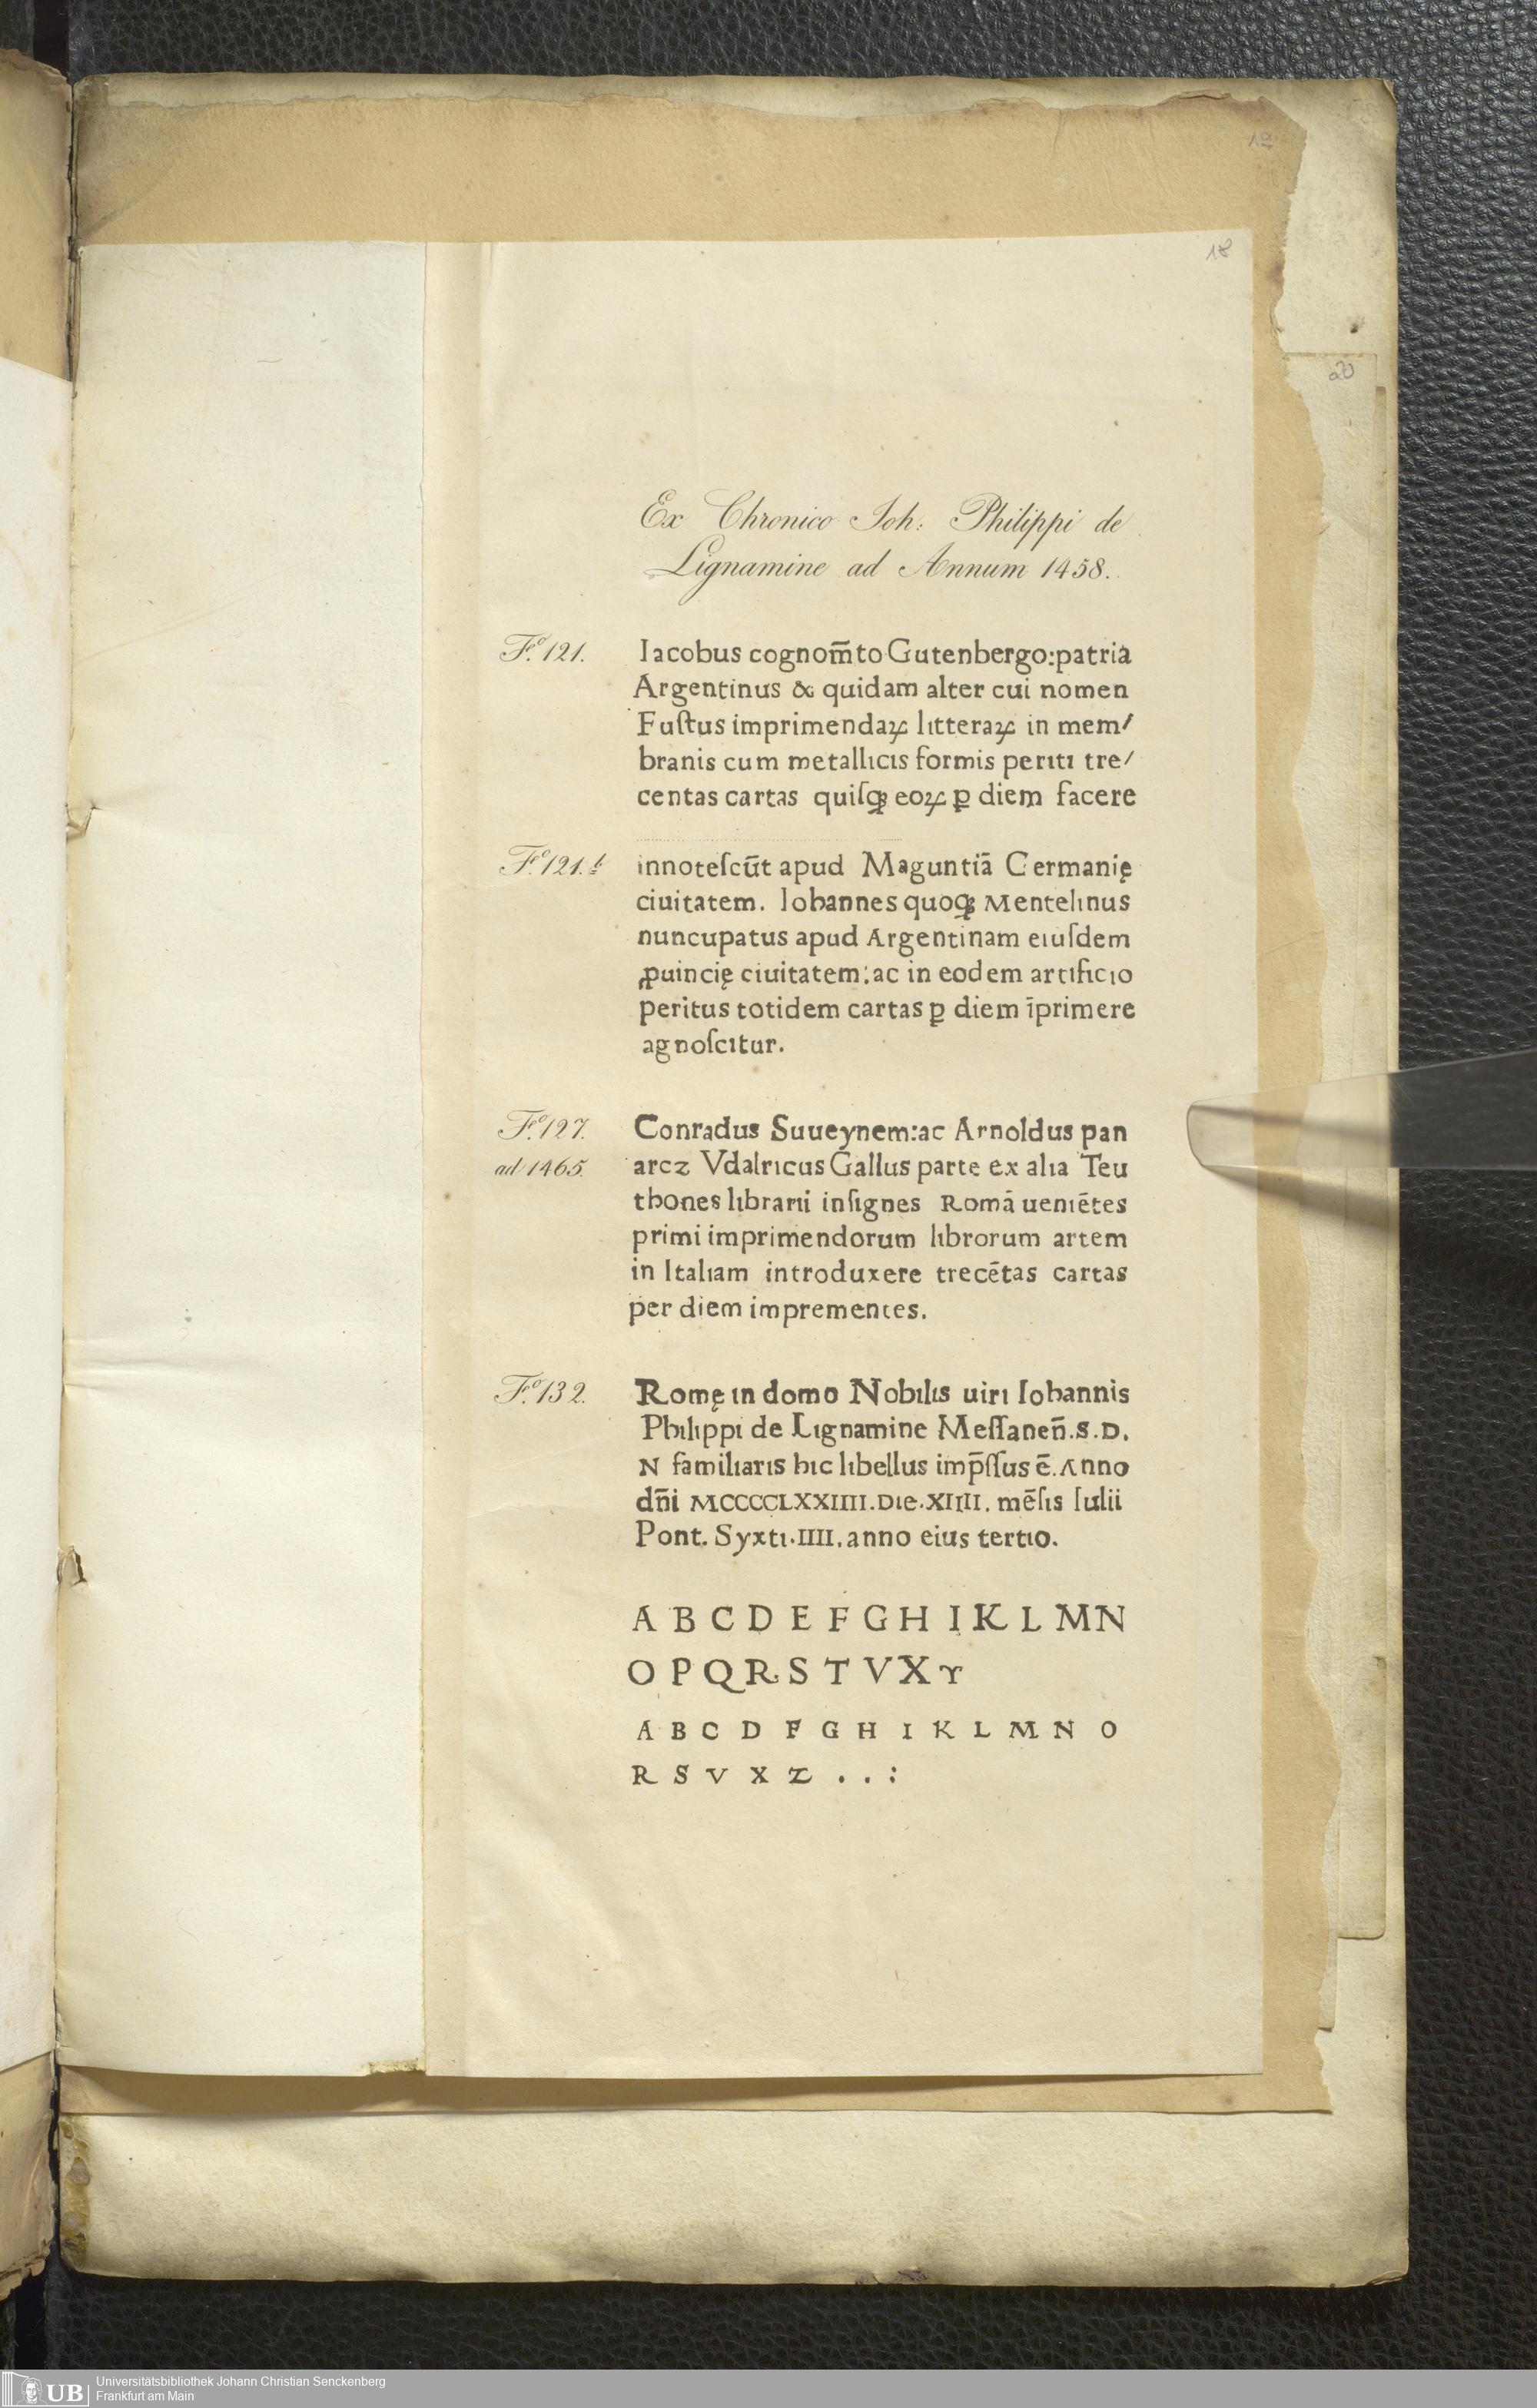 19
18
20
Ex Chronico Joh: Philippi de
Lignamine ad Annum 1458.
Fº. 121. Iacobus cognom̄to Gutenbergo:patria
Argentinus & quidam alter cui nomen
Fuſtus imprimendaꝝ litteraꝝ in mem/
branis cum metallicis formis periti tre/
centas cartas quiſqꝫ eoꝝ ꝑ diem facere
Fº. 121.b innoteſcūt apud Maguntiā Germanię
ciuitatem. Iohannes quoqꝫ Mentelinus
nuncupatus apud Argentinam eiuſdem
ꝓuincię ciuitatem:ac in eodem artificio
peritus totidem cartas ꝑ diem īprimere
agnoſcitur.
Fº. 127. Conradus Suueynem:ac Arnoldus pan
ad 1465. arcz Vdalricus Gallus parte ex alia Teu
thones librarii inſignes Romā ueniētes
primi imprimendorum librorum artem
in Italiam introduxere trecētas cartas
per diem imprementes.
Fº. 132. Romę in domo Nobilis uiri Iohannis
Philippi de Lignamine Meſſaneñ.S.D.
N familiaris hic libellus imp̄ſſus ē.Anno
dn̄i MCCCCLXXIIII.Die.XIIII. mēſis Iulii
Pont. Syxti.IIII.anno eius tertio.
A B C D E F G H I K L M N
O P Q R S T V X Y
A B C D F G H I K L M N O
R S V X Z . . :
UB Universitätsbibliothek Johann Christian Senckenberg
Frankfurt am Main